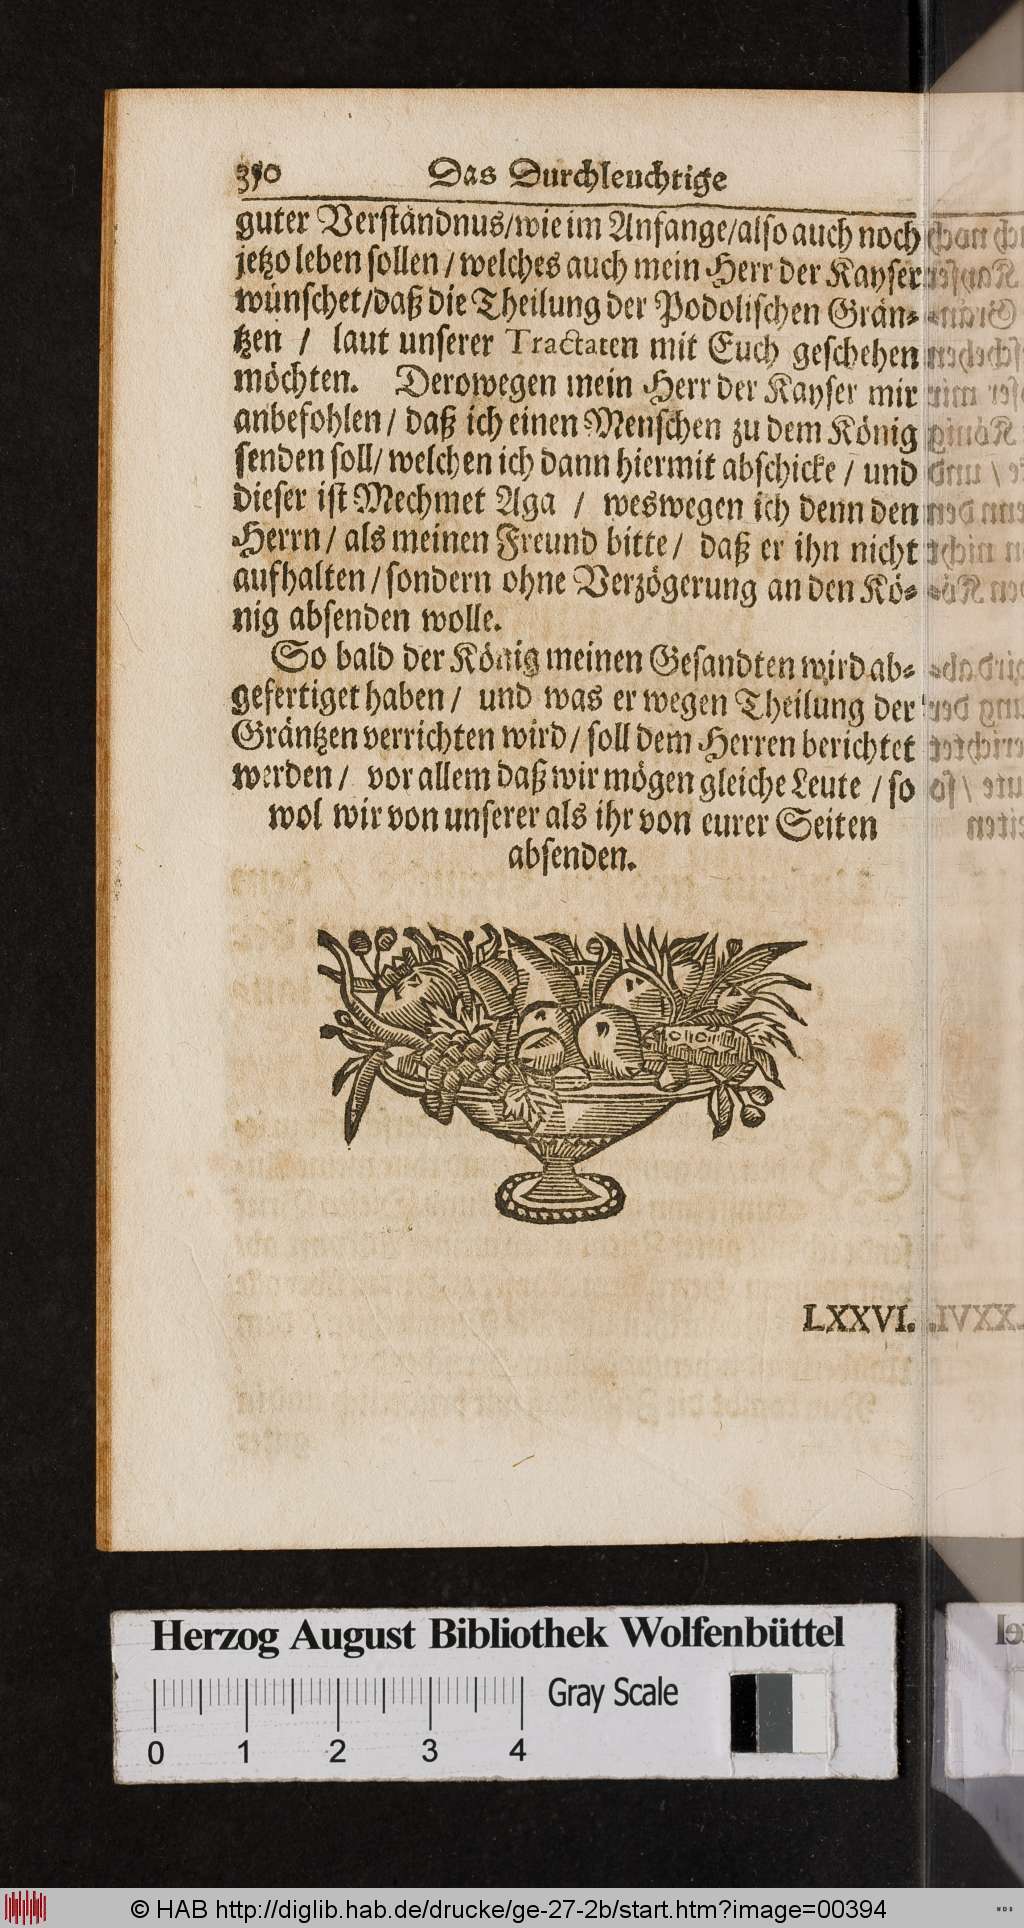 350 Das Durchleuchtige
guter Verständnus/wie im Anfange/also auch noch
jetzo leben sollen/welches auch mein Herr der Kayser
wünschet/daß die Theilung der Podolischen Grän-
tzen / laut unserer Tractaten mit Euch geschehen
möchten. Derowegen mein Herr der Kayser mir
anbefohlen/ daß ich einen Menschen zu dem König
senden soll/ welchen ich dann hiermit abschicke / und
dieser ist Mechmet Aga / weswegen ich denn den
Herrn/ als meinen Freund bitte/ daß er ihn nicht
aufhalten/sondern ohne Verzögerung an den Kö-
nig absenden wolle.
So bald der König meinen Gesandten wird ab-
gefertiget haben/ und was er wegen Theilung der
Gräntzen verrichten wird/ soll dem Herren berichtet
werden/ vor allem daß wir mögen gleiche Leute /so
wol wir von unserer als ihr von eurer Seiten
absenden.
LXXVI.
Herzog August Bibliothek Wolfenbüttel
Gray Scale
0 1 2 3 4
© HAB http://diglib.hab.de/drucke/ge-27-2b/start.htm?image=00394